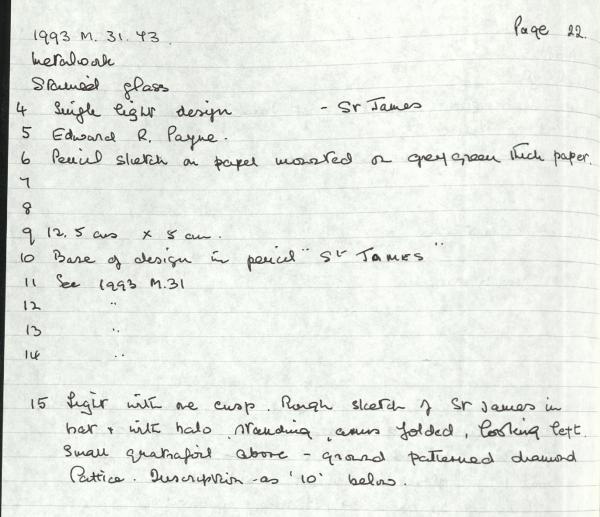 Page 22.
1993 M. 31. 43.
Metalwork
Stained glass
4 Single light design - St James
5 Edward R. Payne.
6 Pencil sketch on paper mounted on grey green thick paper.
7
8
9 12.5 cms x 5 cm.
10 Base of design in pencil "St JAMES"
11 See 1993 M.31
12 "
13 "
14 "
15 Light with one cusp. Rough sketch of St James in
hat + with halo, standing, arms folded, looking left.
Small quatrafoil above - ground patterned diamond
lattice. Inscription as '10' below.